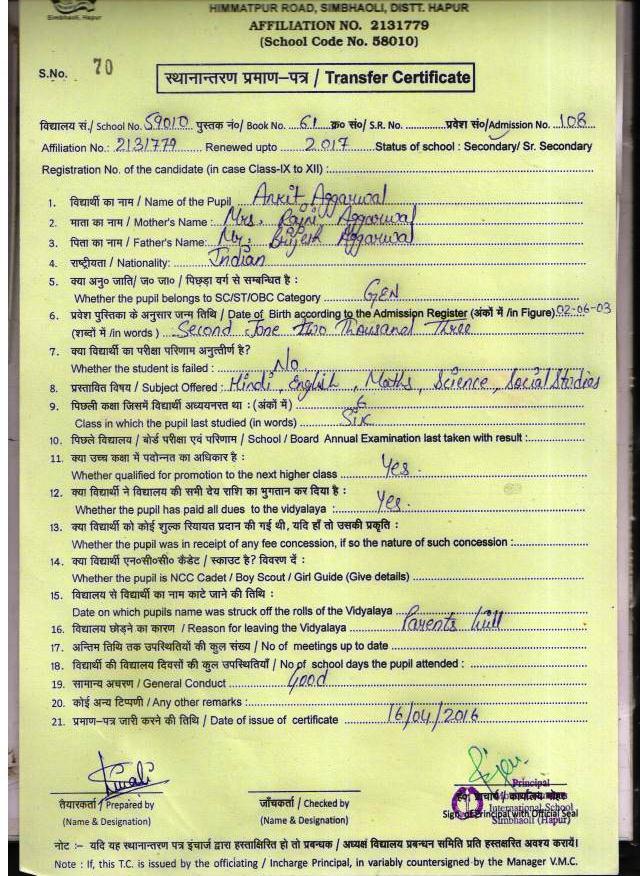 Simbhaoli, Hapur
HIMMATPUR ROAD, SIMBHAOLI, DISTT. HAPUR
AFFILIATION NO. 2131779
(School Code No. 58010)
S.No. 70
स्थानान्तरण प्रमाण-पत्र / Transfer Certificate
विद्यालय सं./ School No. 59010 पुस्तक नं०/ Book No. 61 क्र० सं०/ S.R. No. .......... प्रवेश सं०/Admission No. 108
Affiliation No.: 2131779 Renewed upto 2017 Status of school : Secondary/ Sr. Secondary
Registration No. of the candidate (in case Class-IX to XII) :
1. विद्यार्थी का नाम / Name of the Pupil Ankit Aggarwal
2. माता का नाम / Mother's Name : Mrs. Rajni Aggarwal
3. पिता का नाम / Father's Name: Mr. Brijesh Aggarwal
4. राष्ट्रीयता / Nationality: Indian
5. क्या अनु० जाति/ ज० जा० / पिछड़ा वर्ग से सम्बन्धित है :
Whether the pupil belongs to SC/ST/OBC Category GEN
6. प्रवेश पुस्तिका के अनुसार जन्म तिथि / Date of Birth according to the Admission Register (अंकों में /in Figure) 02-06-03
(शब्दों में /in words ) Second June two Thousand Three
7. क्या विद्यार्थी का परीक्षा परिणाम अनुत्तीर्ण है?
Whether the student is failed : No
8. प्रस्तावित विषय / Subject Offered : Hindi, English, Maths, Science, Social Studies
9. पिछली कक्षा जिसमें विद्यार्थी अध्ययनरत था : (अंकों में ) 6
Class in which the pupil last studied (in words) Six
10. पिछले विद्यालय / बोर्ड परीक्षा एवं परिणाम / School / Board Annual Examination last taken with result :
11. क्या उच्च कक्षा में पदोन्नत का अधिकार है :
Whether qualified for promotion to the next higher class Yes.
12. क्या विद्यार्थी ने विद्यालय की सभी देय राशि का भुगतान कर दिया है :
Whether the pupil has paid all dues to the vidyalaya : Yes.
13. क्या विद्यार्थी को कोई शुल्क रियायत प्रदान की गई थी, यदि हाँ तो उसकी प्रकृति :
Whether the pupil was in receipt of any fee concession, if so the nature of such concession :
14. क्या विद्यार्थी एन०सी०सी० कैडेट / स्काउट है? विवरण दें :
Whether the pupil is NCC Cadet / Boy Scout / Girl Guide (Give details)
15. विद्यालय से विद्यार्थी का नाम काटे जाने की तिथि :
Date on which pupils name was struck off the rolls of the Vidyalaya
16. विद्यालय छोड़ने का कारण / Reason for leaving the Vidyalaya Parents Will
17. अन्तिम तिथि तक उपस्थितियों की कुल संख्य / No of meetings up to date
18. विद्यार्थी की विद्यालय दिवसों की कुल उपस्थितियाँ / No of school days the pupil attended :
19. सामान्य अचरण / General Conduct Good
20. कोई अन्य टिप्पणी / Any other remarks :
21. प्रमाण-पत्र जारी करने की तिथि / Date of issue of certificate 16/04/2016
Principal
तैयारकर्ता / Prepared by जाँचकर्ता / Checked by
International School
(Name & Designation) (Name & Designation) Sign. of Principal with Official Seal
Simbhaoli (Hapur)
नोट :- यदि यह स्थानान्तरण पत्र इंचार्ज द्वारा हस्ताक्षरित हो तो प्रबन्धक / अध्यक्ष विद्यालय प्रबन्धन समिति प्रति हस्तक्षरित अवश्य करायें।
Note : If, this T.C. is issued by the officiating / Incharge Principal, in variably countersigned by the Manager V.M.C.